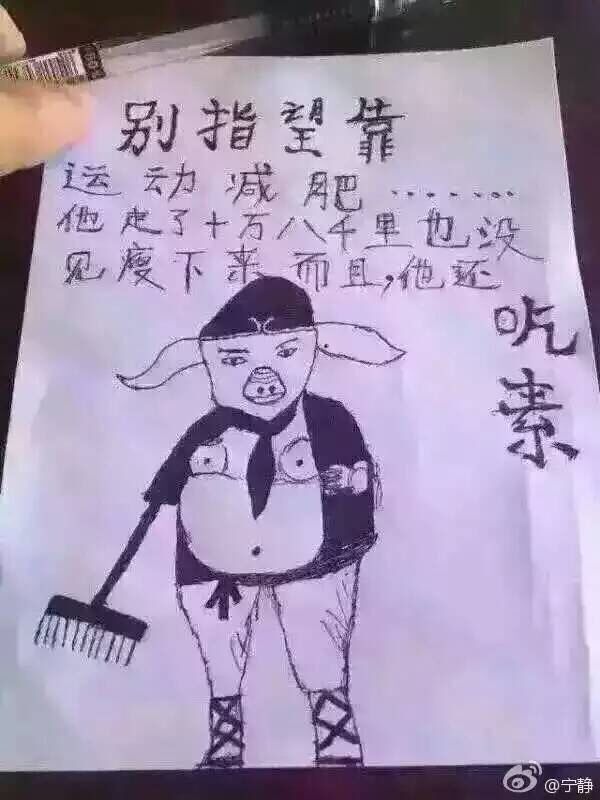 别指望靠
运动减肥.......
他走了十万八千里也没
见瘦下来而且,他还
吃素
@宁静